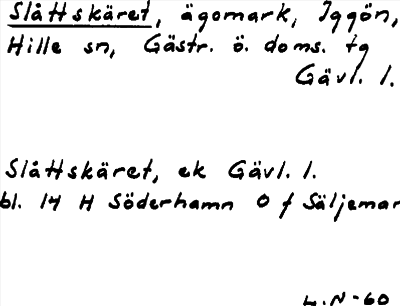 Slåttskäret, ägomark, Iggön,
Hille sn, Gästr. ö. doms. tg
Gävl. l.
Slåttskäret, ek Gävl. l.
bl. 14 H Söderhamn O f Säljemar
H.N-60